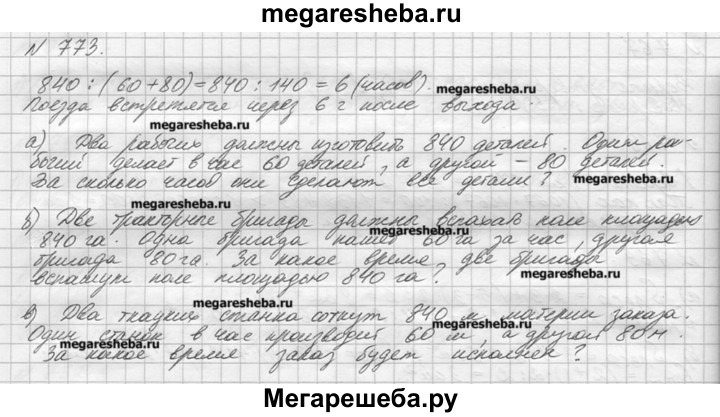 megaresheba.ru
N 773.
840 : (60+80) = 840 : 140 = 6 (часов).
megaresheba.ru
Поезда встретятся через 6 г после выхода.
megaresheba.ru
а) Два рабочих должны изготовить 840 деталей. Один ра-
бочий делает в час 60 деталей, а другой – 80 деталей.
За сколько часов они сделают все детали?
megaresheba.ru
megaresheba.ru
б) Две тракторные бригады должны вспахать поле площадью
840 га. Одна бригада пашет 60 га за час, другая
бригада 80 га. За какое время две бригады
вспашут поле площадью 840 га?
megaresheba.ru
в) Два ткацких станка соткут 840 м материи заказа.
megaresheba.ru
Один станок в час производит 60 м, а другой 80 м.
megaresheba.ru
За какое время заказ будет исполнен?
Мегарешеба.ру